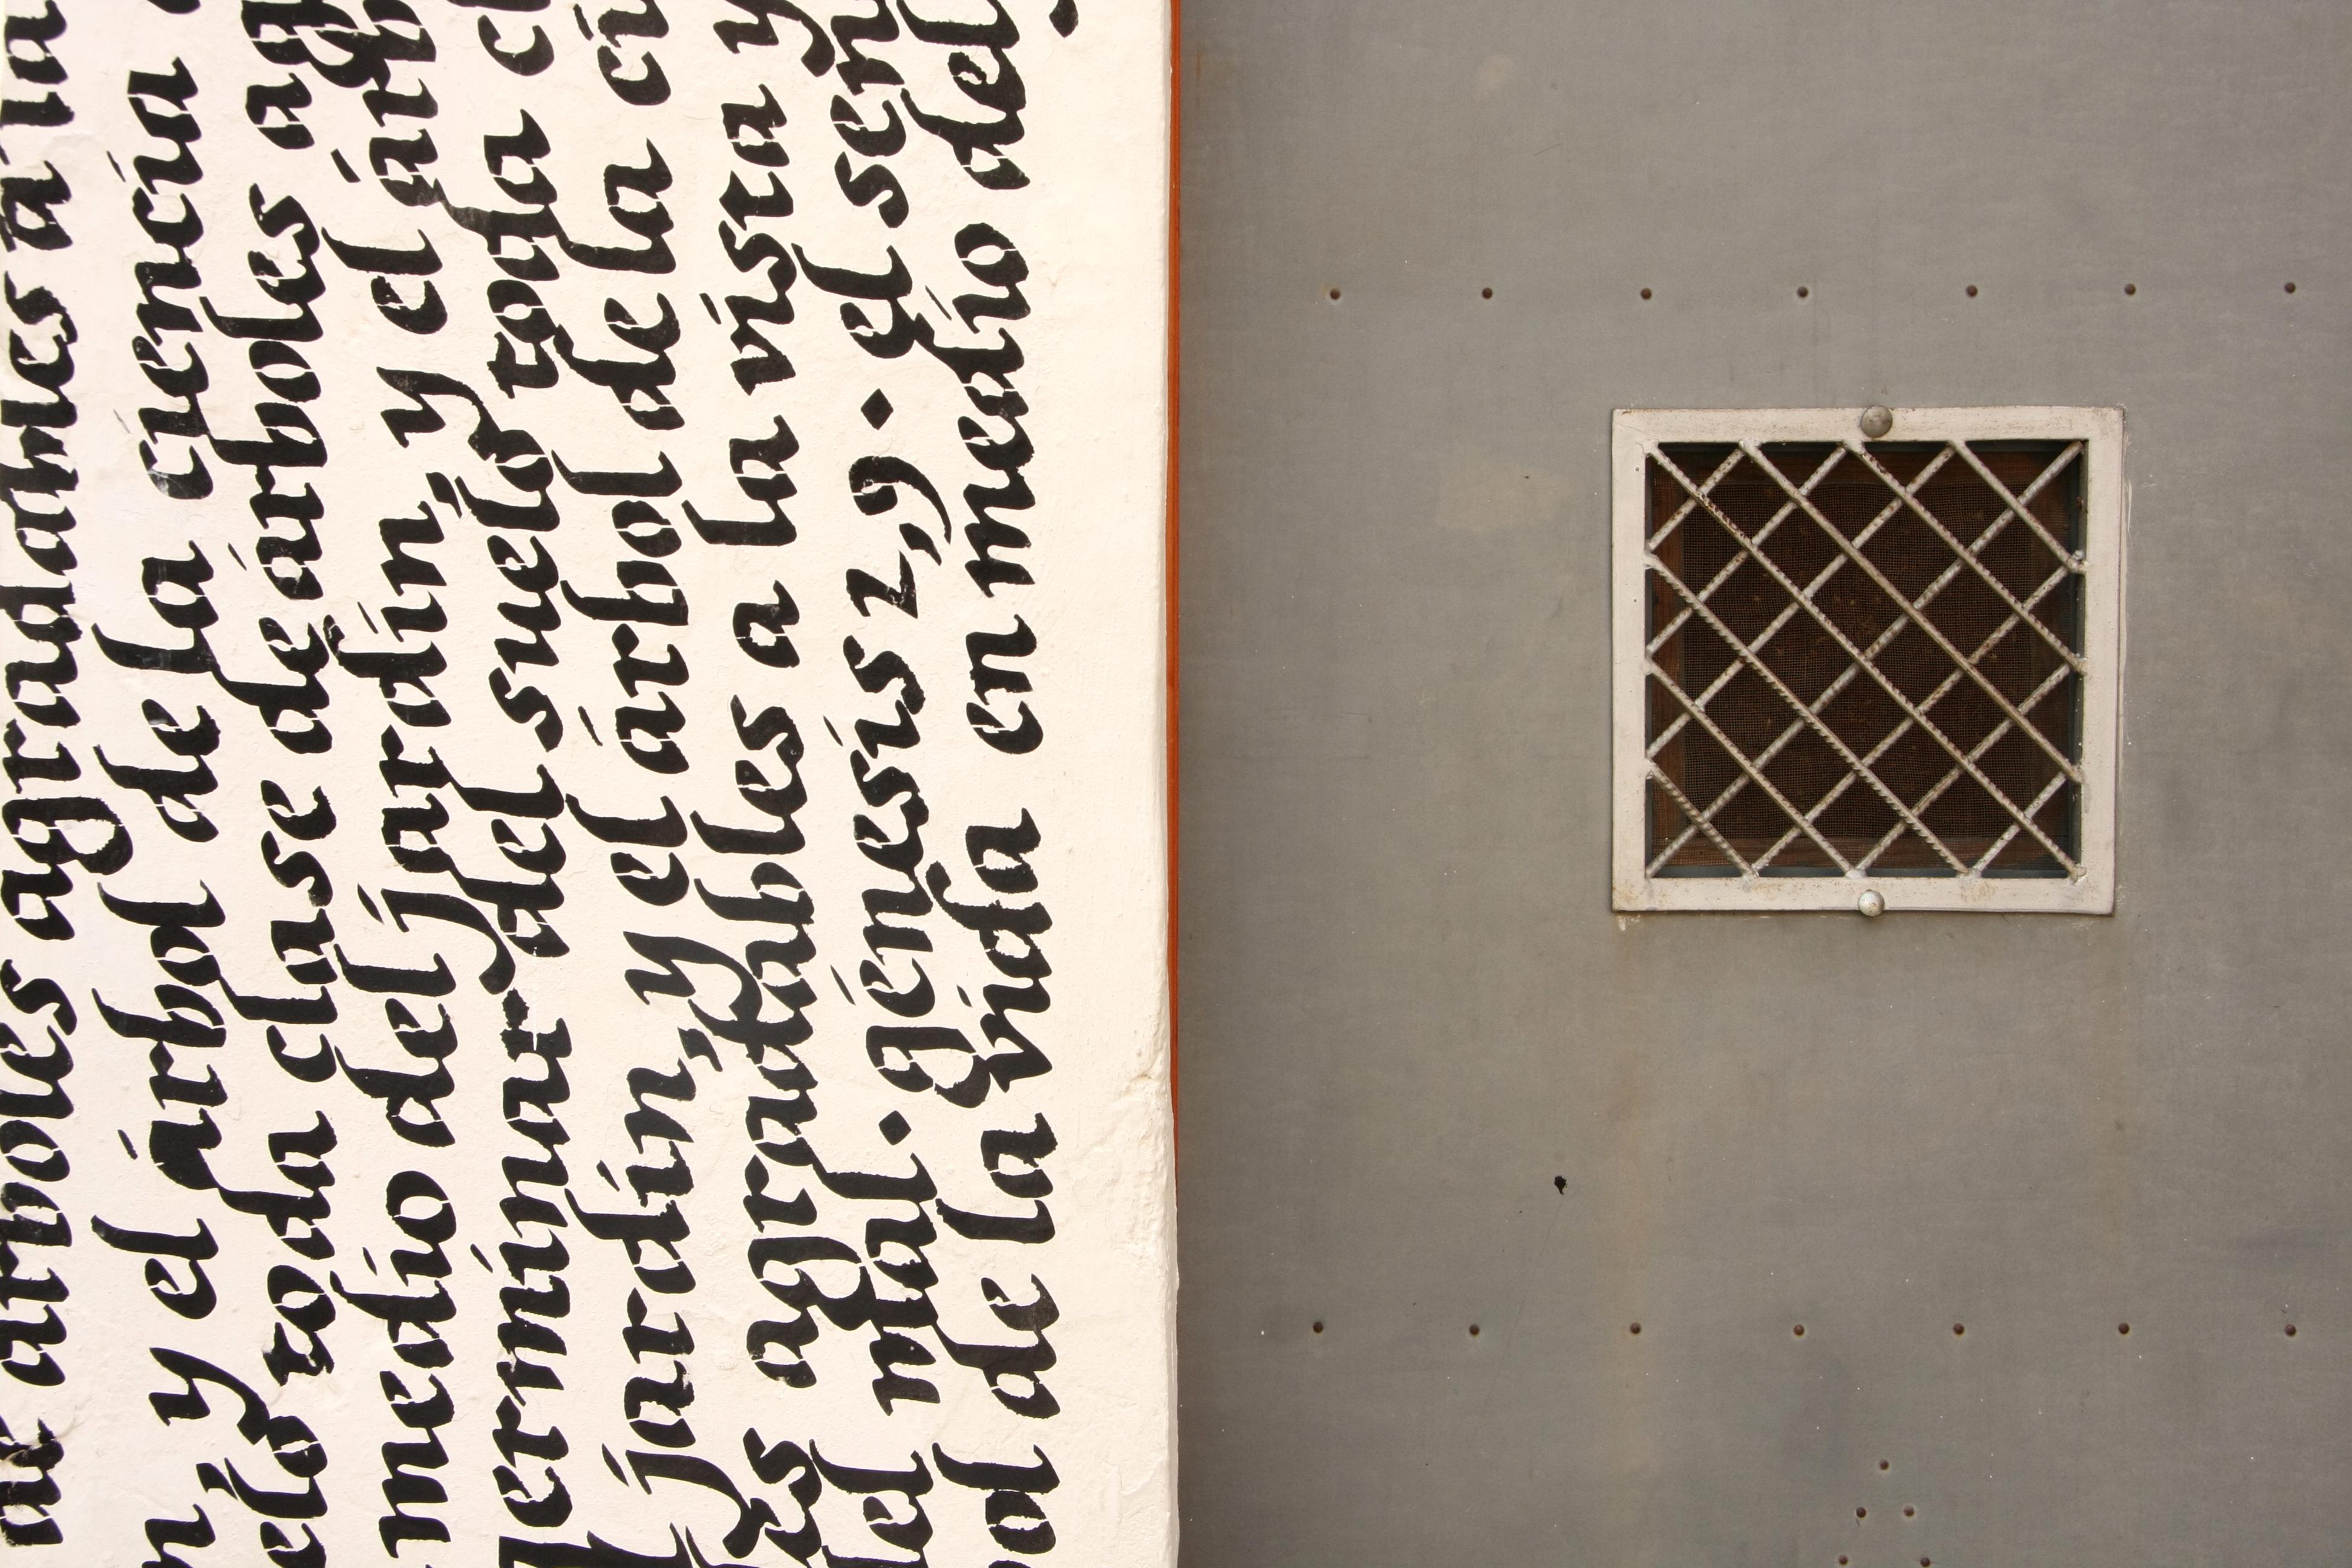 de árboles agradables a la
n, y el árbol de la ciencia
elo toda clase de árboles ag
medio del jardín, y el árb
germinar del suelo toda cl
jardín, y el árbol de la ci
es agradables a la vista y
del mal · génesis 2,9 · el sen
ol de la vida en medio del